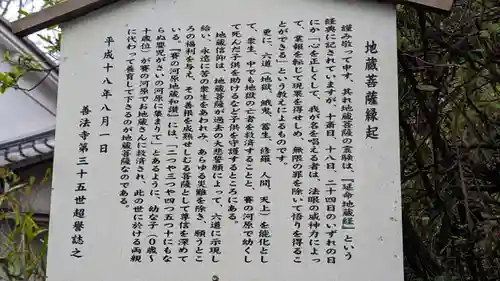 地蔵菩薩縁起
謹み敬って申す。其れ地蔵菩薩の霊験は、『延命地蔵経』という
経典に記されていますが、十斎日、十八日、二十四日のいずれの日
にか「心を正しくして、我が名を唱える者は、法眼の威神力によっ
て、業報を転じて現果を得せしめ、無限の罪を除いて悟りを得るこ
とができる」という教えによるものです。
更に、六道（地獄、餓鬼、畜生、修羅、人間、天上）を能化とし
て、衆生、中でも地獄の亡者を救済すること、賽の河原で幼くし
て死んだ子供を助けるなど子供を守護するところにある。
地蔵信仰は、地蔵菩薩が過去の大悲誓願によって、六道に示現し
給い、永遠に苦の衆生をあわれみ、あらゆる災難を除き、願うとこ
ろの福利を与え、その善根を成熟せしむる菩薩として尊信を深めて
いる。「賽の河原地蔵和讃」には、「二つや三つや四つ五つ十にもな
らぬ嬰児がさいの河原に集まりて」とあるように、幼な子（0歳～
十歳位）が賽の河原でお地蔵さんに救済され、此の世に於ける両親
に代わって養育して下さるのが地蔵菩薩なのである。
平成十八年八月一日
善法寺第三十五世超誉誌之